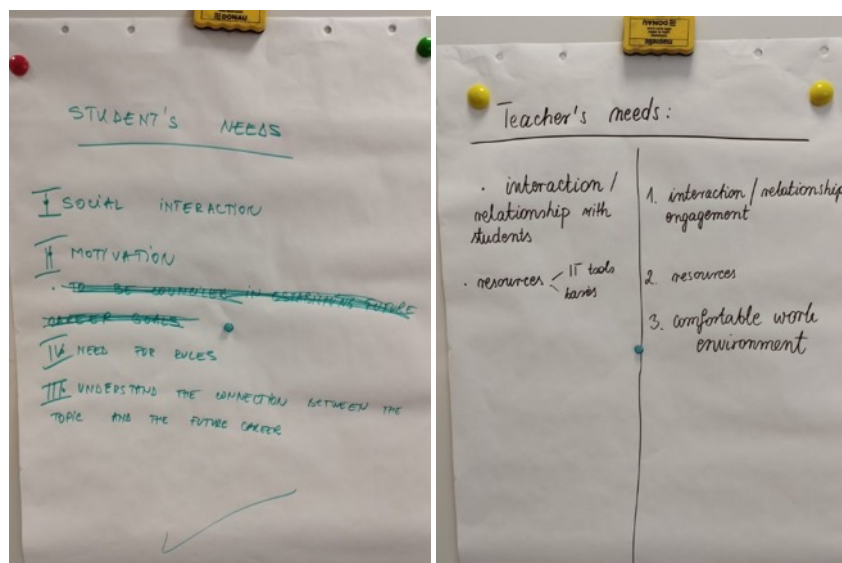 DONAU
STUDENT'S NEEDS
I SOCIAL INTERACTION
II MOTIVATION
· TO BE COUNCILED IN ESTABLISHING FUTURE
CAREER GOALS
IV NEED FOR RULES
III UNDERSTAND THE CONNECTION BETWEEN THE
TOPIC AND THE FUTURE CAREER
DONAU
Teacher's needs:
· interaction /
relationship with
students
· resources IT tools
basics
1. interaction / relationship
engagement
2. resources
3. comfortable work
environment